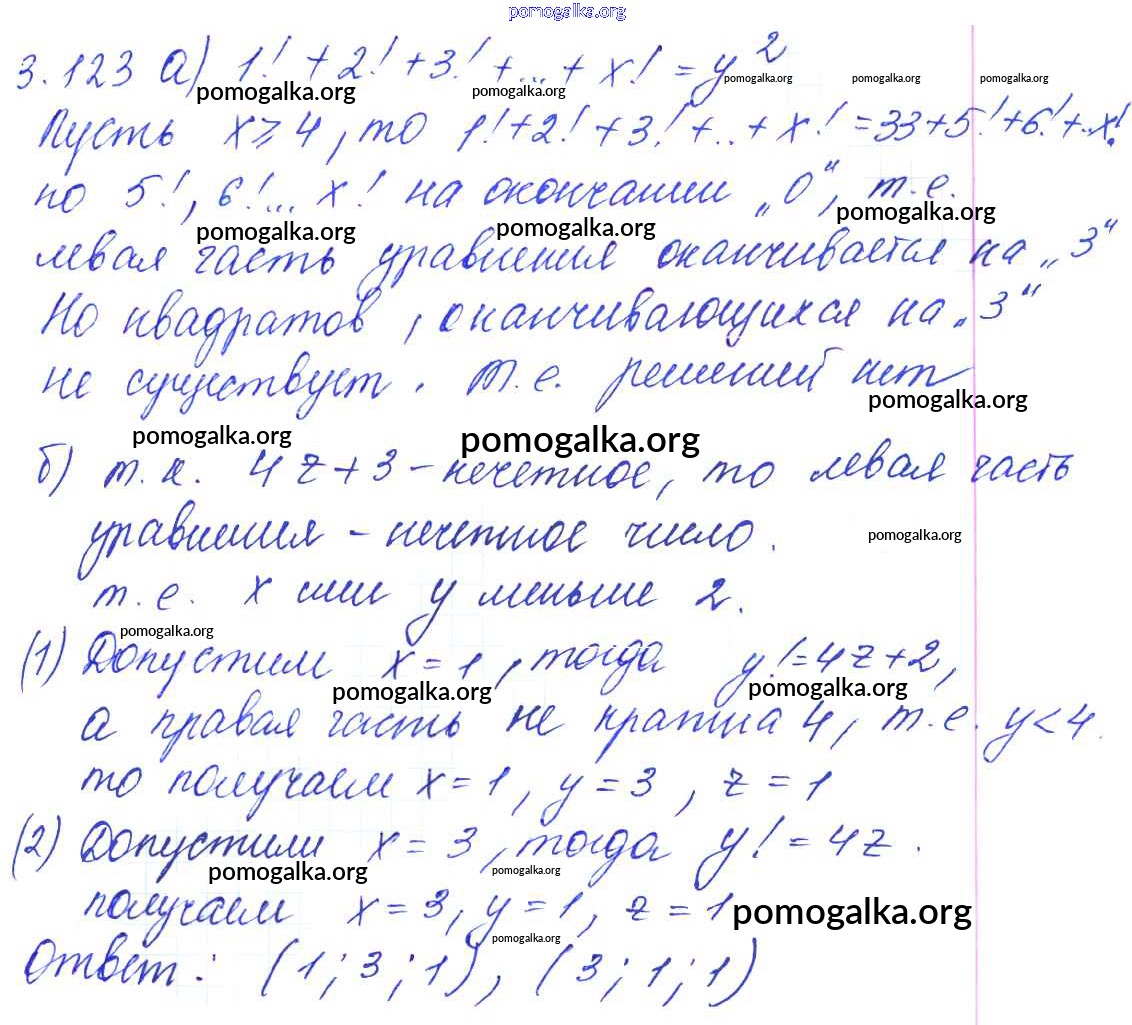 pomogalka.org
3.123 а) 1! + 2! + 3! + ... + x! = y²
pomogalka.org pomogalka.org pomogalka.org pomogalka.org pomogalka.org
Пусть x ≥ 4, то 1! + 2! + 3! + .. + x! = 33 + 5! + 6! + .. x!
но 5!, 6! ... x! на окончании „0“, т.е.
pomogalka.org pomogalka.org pomogalka.org
левая часть уравнения оканчивается на „3“
Но квадратов, оканчивающихся на „3“
не существует. Т.е. решений нет
pomogalka.org
pomogalka.org pomogalka.org
б) т.к. 4z + 3 - нечетное, то левая часть
уравнения - нечетное число.
pomogalka.org
т.е. x или y меньше 2.
pomogalka.org
(1) Допустим x = 1, тогда y! = 4z + 2,
pomogalka.org pomogalka.org
а правая часть не кратна 4, т.е. y < 4.
то получаем x = 1, y = 3, z = 1
(2) Допустили x = 3, тогда y! = 4z.
pomogalka.org pomogalka.org
получаем x = 3, y = 1, z = 1
pomogalka.org
pomogalka.org
Ответ: (1; 3; 1), (3; 1; 1)